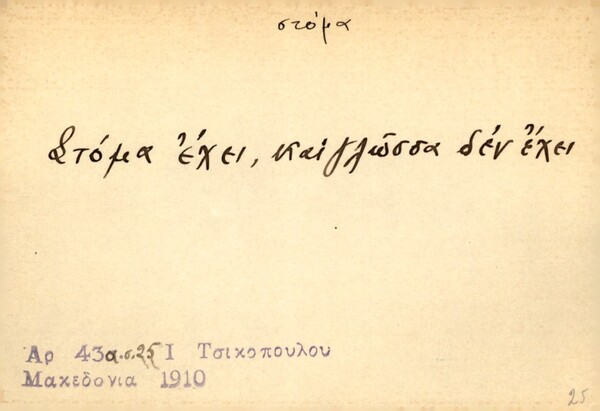 στόμα
Στόμα ἔχει, καί γλῶσσα δέν ἔχει
Αρ 43α.σ.25 Ι Τσικοπουλου
Μακεδονια 1910
25